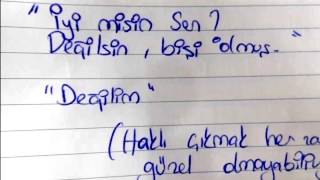 "İyi misin sen?
Deqilsin, bişi olmuş."
"Deqilim"
(Haklı çıkmak her za
güzel olmayabiliy